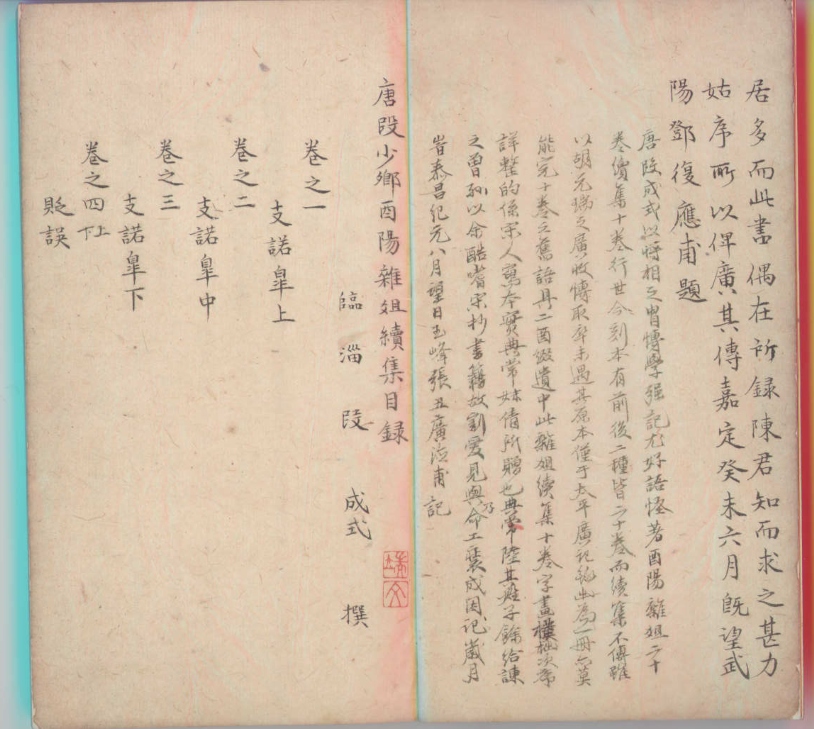 居多而此書偶在所録陳君知而求之甚力
姑序所以俾廣其傳嘉定癸未六月既望武
陽鄧復應甫題
唐段成式以將相之胄博學强記尤好語怪著酉陽雜俎二十
卷續集十卷行世今刻本有前後二種皆二十卷而續集不傳雖
以胡元瑞之廣收博取亦未遇其原本僅于太平廣記鈔出為一冊亦莫
能完十卷之舊語具二酉綴遺中此雜俎續集十卷字畫樸拙次序
詳整的係宋人寫本寶典常妹倩所贈也典常陸其姓子餘給諫
之曾孫以余酷嗜宋抄書籍故割愛見與乃命工裝成因記歲月
旹泰昌紀元八月望日玉峰張丑廣德甫記
唐段少卿酉陽雜俎續集目録
臨淄段成式撰
卷之一
支諾皐上
卷之二
支諾皐中
卷之三
支諾皐下
卷之四上
貶誤